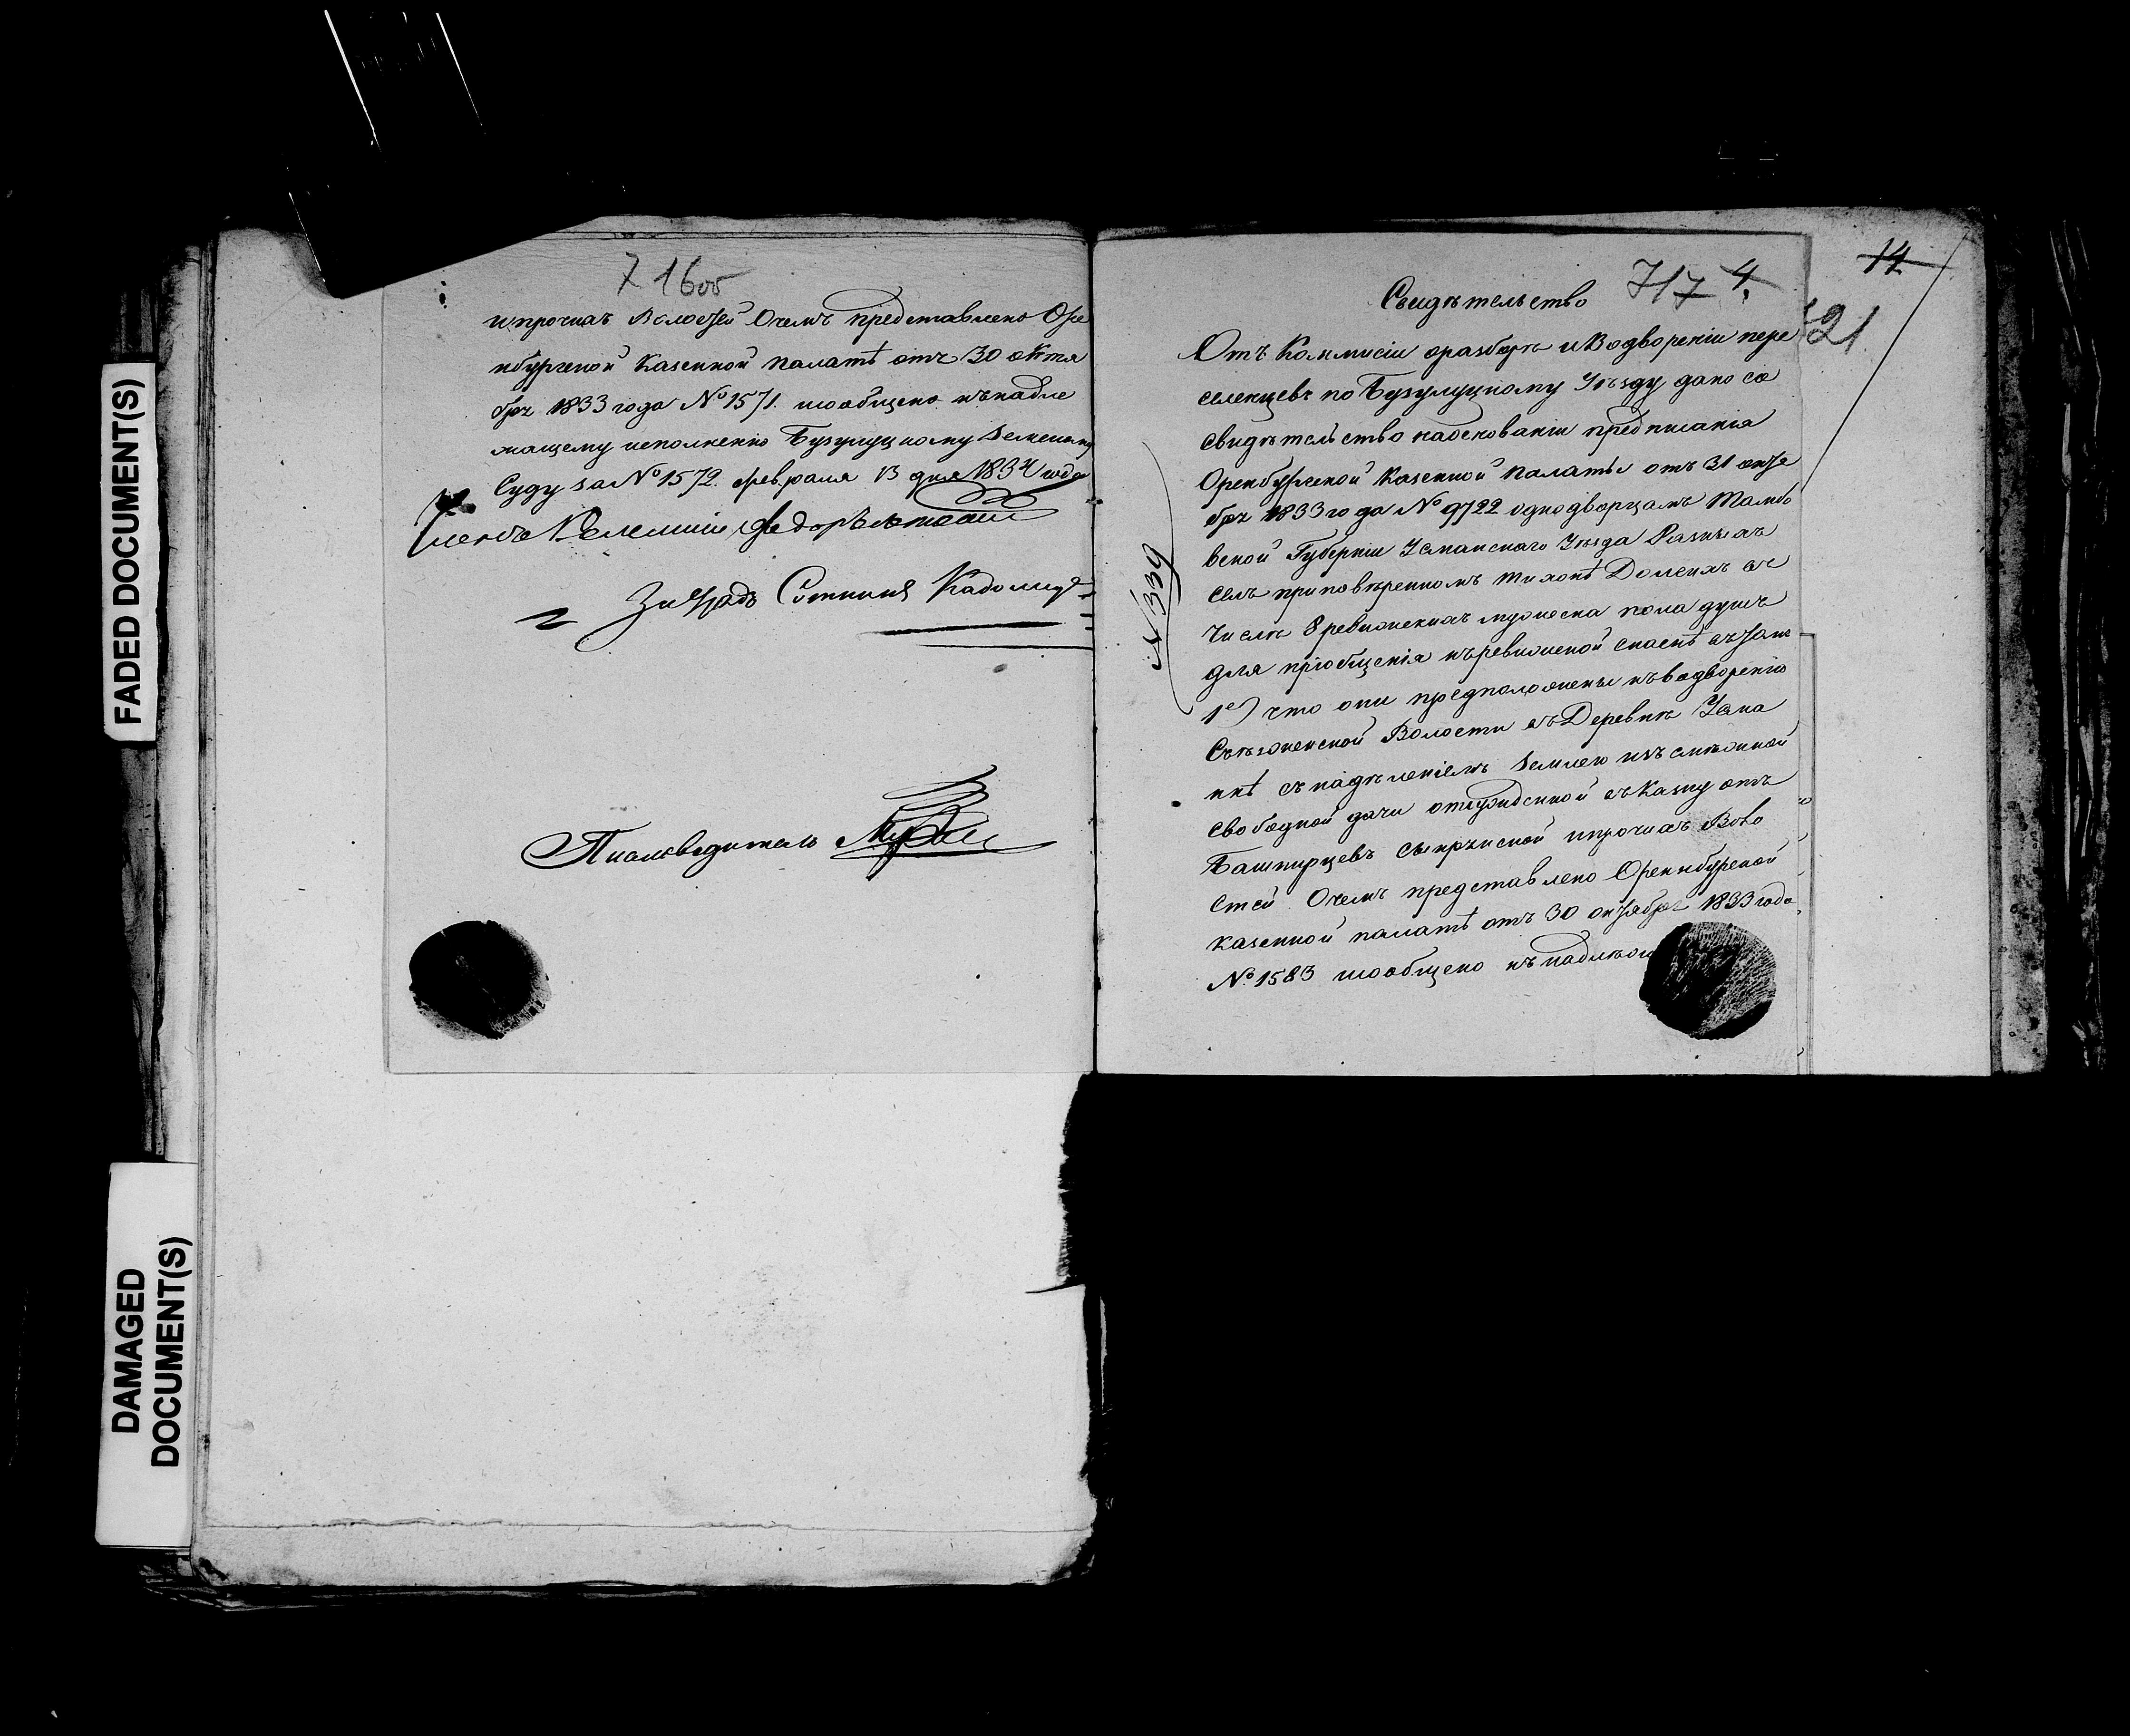 FADED DOCUMENT(S)
DAMAGED
DOCUMENT(S)
716об
ипрочихъ Волостей Очемъ представлено Оре
нбургской Казенной палатѣ отъ 30 октя
бря 1833 года № 1571. исообщено кънадле
жащему исполненію Бузулуцкому Земскому
Суду за № 1572. февраля 13 дня 1834 года
членъ Коммисіи
Сотника
Писмоводитель
14
717 4.
21
Свидѣтельство
Отъ Коммисіи оразборѣ иВодвореніи пере
селенцевъ по Бузулуцкому Уѣзду дано сѣ
свидѣтельство наоснованіи предписанія
Оренбургской Казенной палаты отъ 31 октя
бря 1833 года № 9722 однодворцамъ Тамбо
вской Губерніи Усманскаго Уѣзда Разныхъ
Селъ приповѣренномъ Тихонѣ въ
числѣ 8 ревижскихъ мужеска пола душъ
для пріобщенія къревижской сказкѣ втомъ
1е) что они предположены къводворенію
Волости въ Деревнѣ Усма
нкѣ снадѣленіемъ землею изъ смѣжной
свободной дачи отсужденной въ Казну отъ
Башкирцевъ ипрочихъ Воло
стей Очемъ представлено Оренбургской
казенной палатѣ отъ 30 октября 1833 года
№ 1583 исообщено къ
№ 339